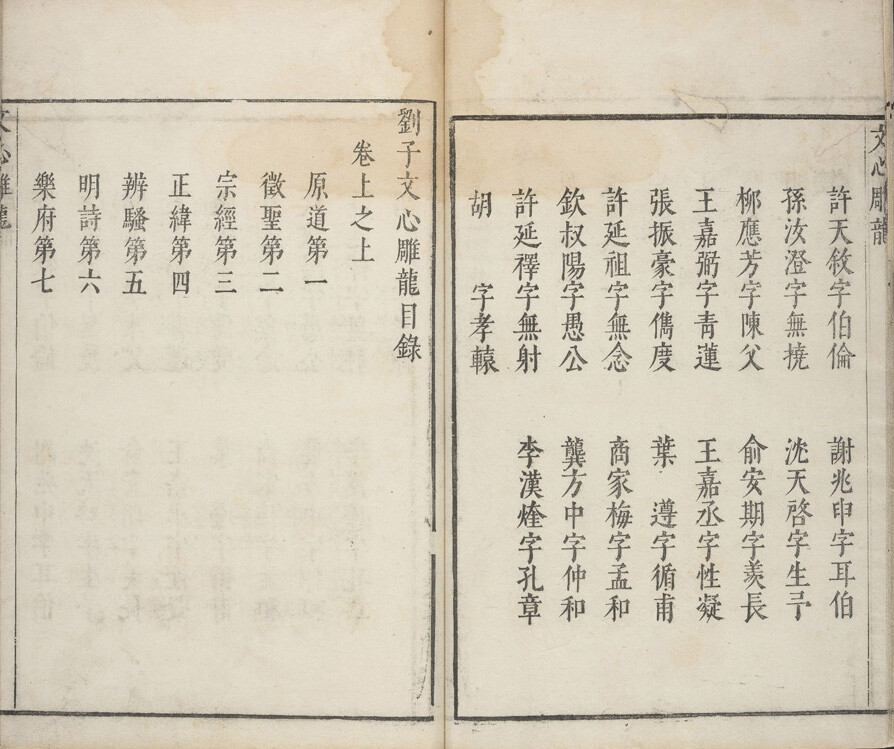 文心雕龍
許天敘字伯倫　謝兆申字耳伯
孫汝澄字無撓　沈天啓字生予
柳應芳字陳父　俞安期字羨長
王嘉弼字青蓮　王嘉丞字性凝
張振豪字儁度　葉　遵字循甫
許延祖字無念　商家梅字孟和
欽叔陽字愚公　龔方中字仲和
許延禪字無射　李漢煃字孔章
胡　　字孝轅
劉子文心雕龍目錄
卷上之上
原道第一
徵聖第二
宗經第三
正緯第四
辨騷第五
明詩第六
樂府第七
文心雕龍